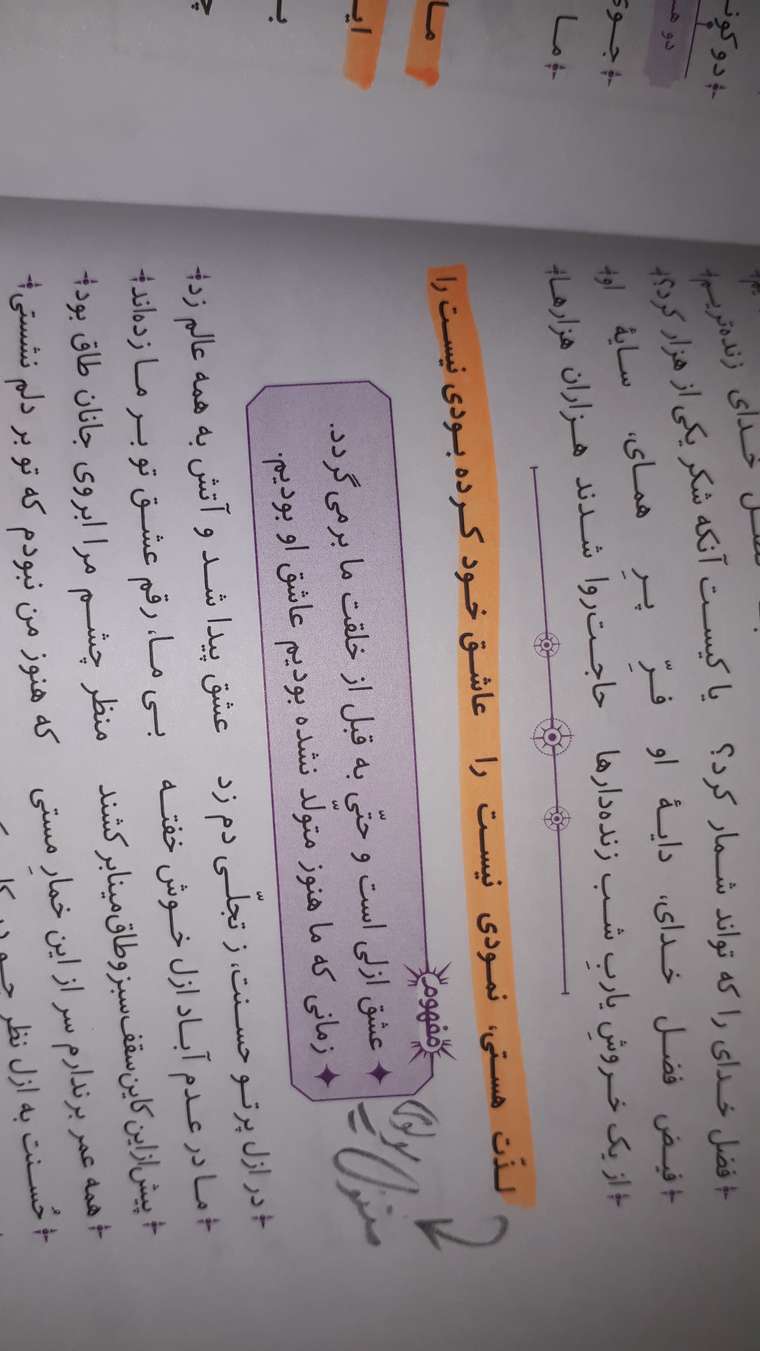 فضل خدای را که تواند شمار کرد؟ یا کیست آنکه شکر یکی از هزار کرد؟
فیض فضل خدای، دایهٔ او فرّ پرِ همای، سایهٔ او
از یک خروشِ یاربِ شب زنده‌دارها حاجت‌روا شدند هزاران هزارها
لذّت هستی، نمودی نیست را عاشق خود کرده بودی نیست را
مولوی
مثنوی
مفهوم
عشق ازلی است و حتّی به قبل از خلقت ما برمی‌گردد.
زمانی که ما هنوز متولّد نشده بودیم عاشق او بودیم.
در ازل پرتو حسنت، ز تجلّی دم زد عشق پیدا شد و آتش به همه عالم زد
ما در عدم آباد ازل خوش خفته بی ما، رقم عشق تو بر ما زده‌اند
پیش از این کاین سقف سبز و طاق مینا برکشند منظر چشم مرا ابروی جانان طاق بود
همه عمر برندارم سر از این خمارِ مستی که هنوز من نبودم که تو بر دلم نشستی
حُسنت به ازل نظر چو در
دو
جوی
ما
ما